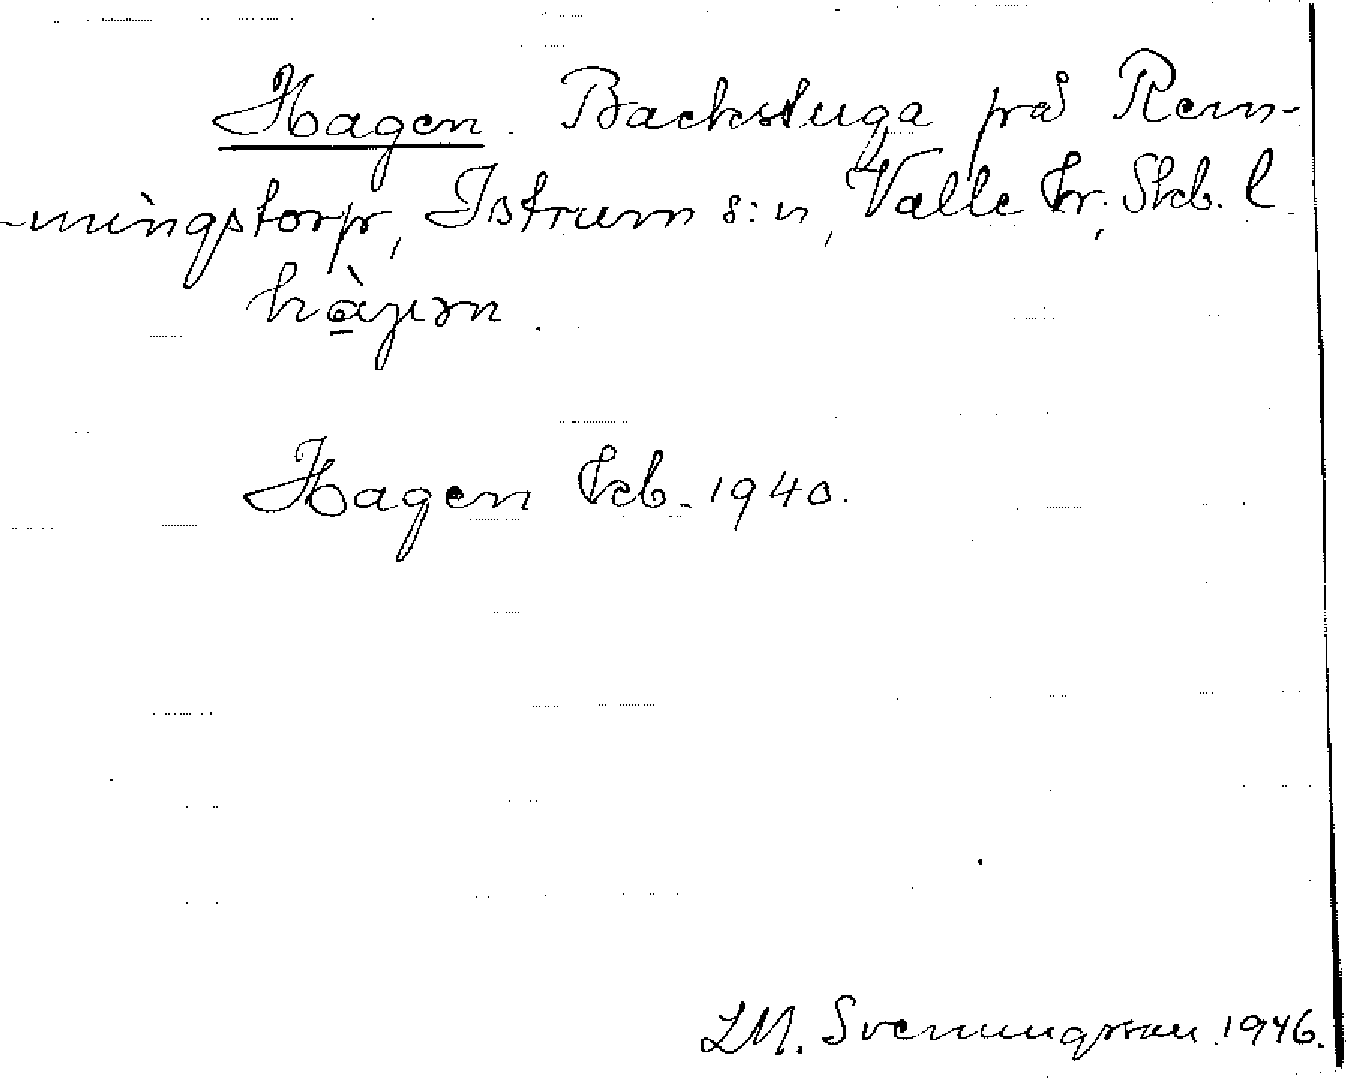 Hagen. Backstuga på Rem-
mingstorp, Istrum s:n, Valle hr, Skb. l
hàgen.
Hagen Kb. 1940.
LM. Svenungsson 1946.